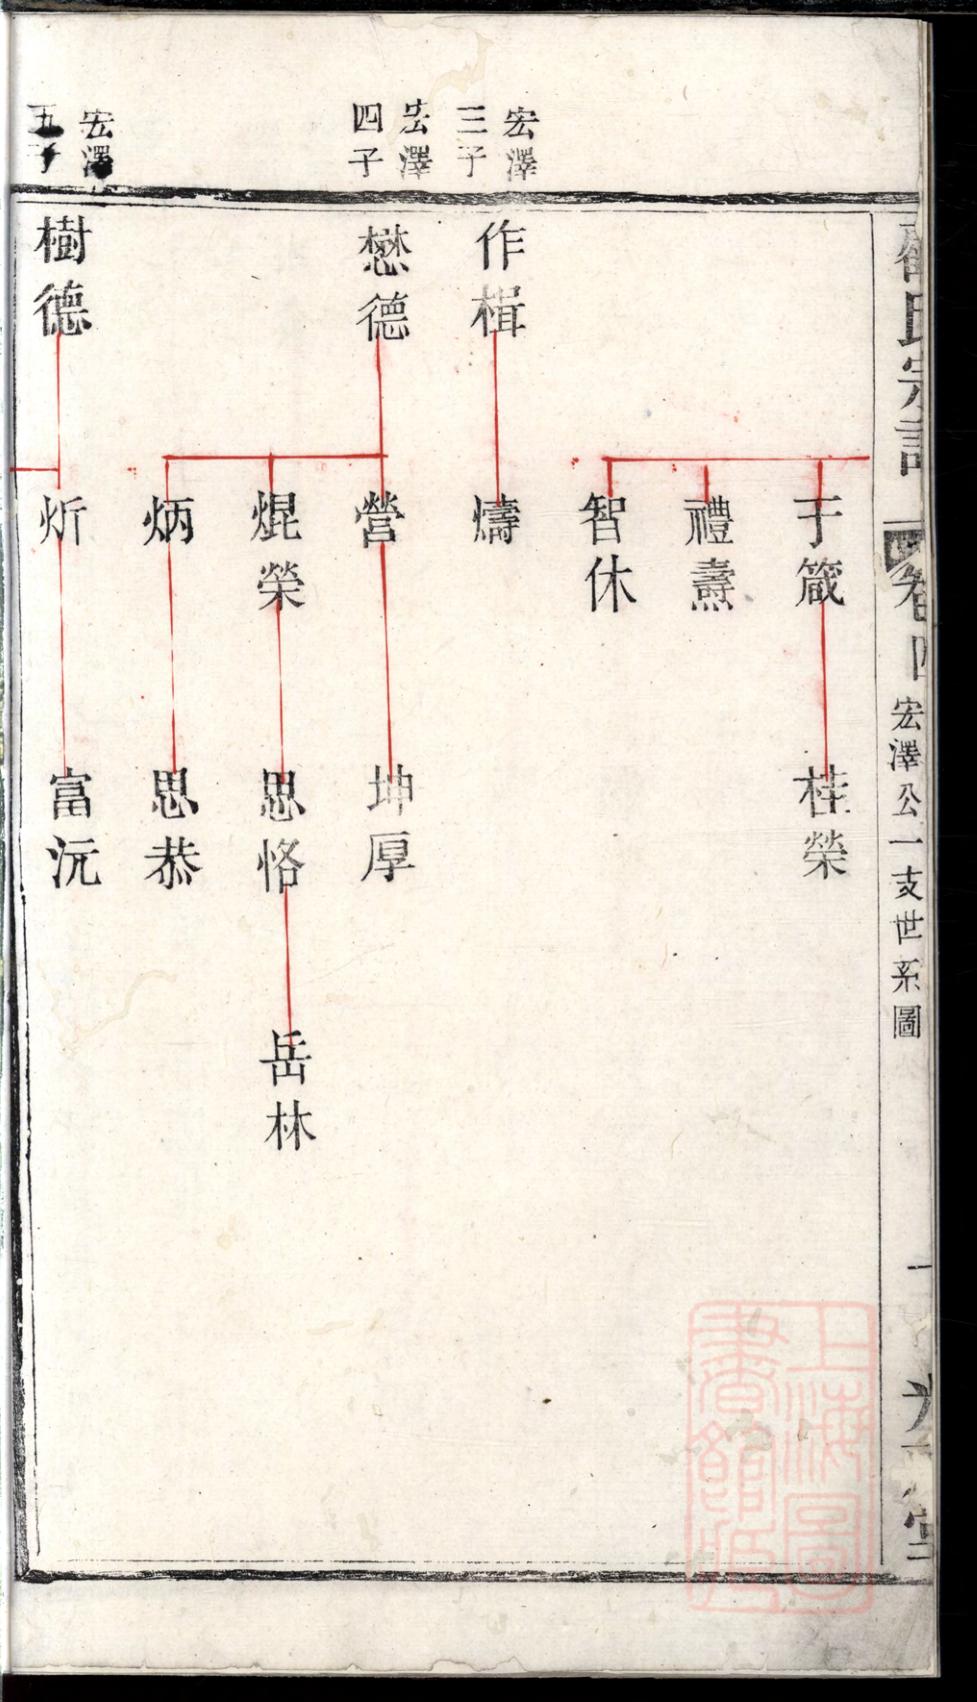 氏宗譜
卷四
宏澤公一支世系圖
宏澤
三子
宏澤
四子
宏澤
五子
作楫
懋德
樹德
于箴
禮燾
智休
燽
營
焜榮
炳
炘
桂榮
坤厚
思恪
思恭
富沅
岳林
上海圖
書館藏